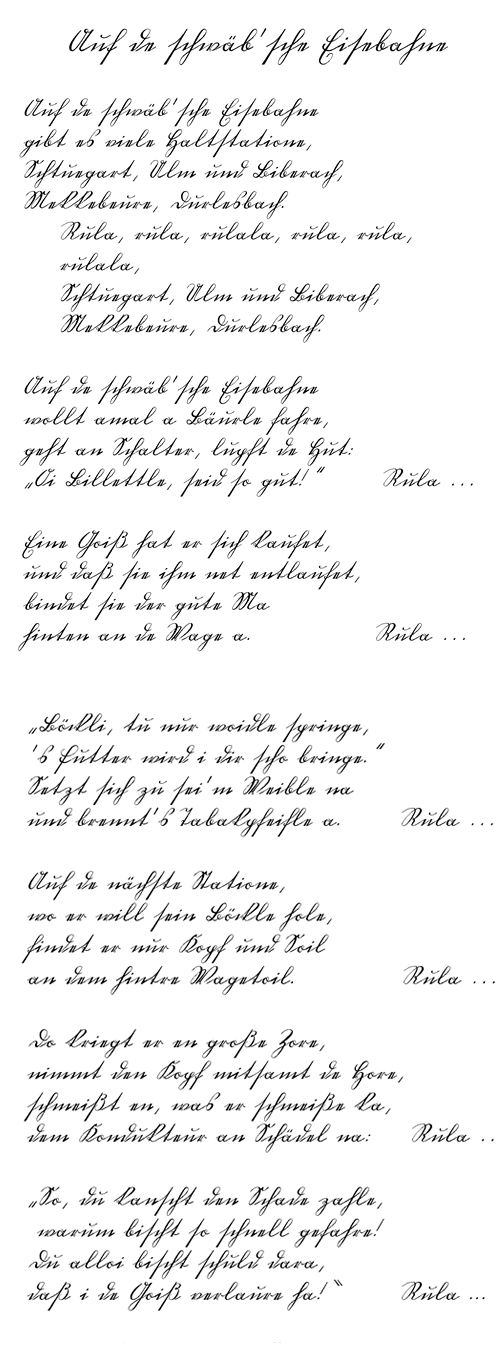 Auf de schwäb'sche Eisebahne
Auf de schwäb'sche Eisebahne
gibt es viele Haltstatione,
Schtuegart, Ulm und Biberach,
Mekkebeure, Durlesbach.
Rula, rula, rulala, rula, rula,
rulala,
Schtuegart, Ulm und Biberach,
Mekkebeure, Durlesbach.
Auf de schwäb'sche Eisebahne
wollt amal a Bäurle fahre,
geht an Schalter, lupft de Hut:
„Oi Billettle, seid so gut!“ Rula ...
Eine Goiß hat er sich kaufet,
und daß sie ihm net entlaufet,
bindet sie der gute Ma
hinten an de Wage a. Rula ...
„Böckli, tu nur woidle springe,
's Futter wird i dir scho bringe.“
Setzt sich zu sei'm Weible na
und brennt's Tabakpfeifle a. Rula ...
Auf de nächste Statione,
wo er will sein Böckle hole,
findet er nur Kopf und Soil
an dem hintre Wagetoil. Rula ...
Do kriegt er en große Zore,
nimmt den Kopf mitsamt de Hore,
schmeißt en, was er schmeiße ka,
dem Kondukteur an Schädel na: Rula ..
„So, du kanscht den Schade zahle,
warum bischt so schnell gefahre!
Du alloi bischt schuld dara,
daß i de Goiß verlaure ha!“ Rula ...